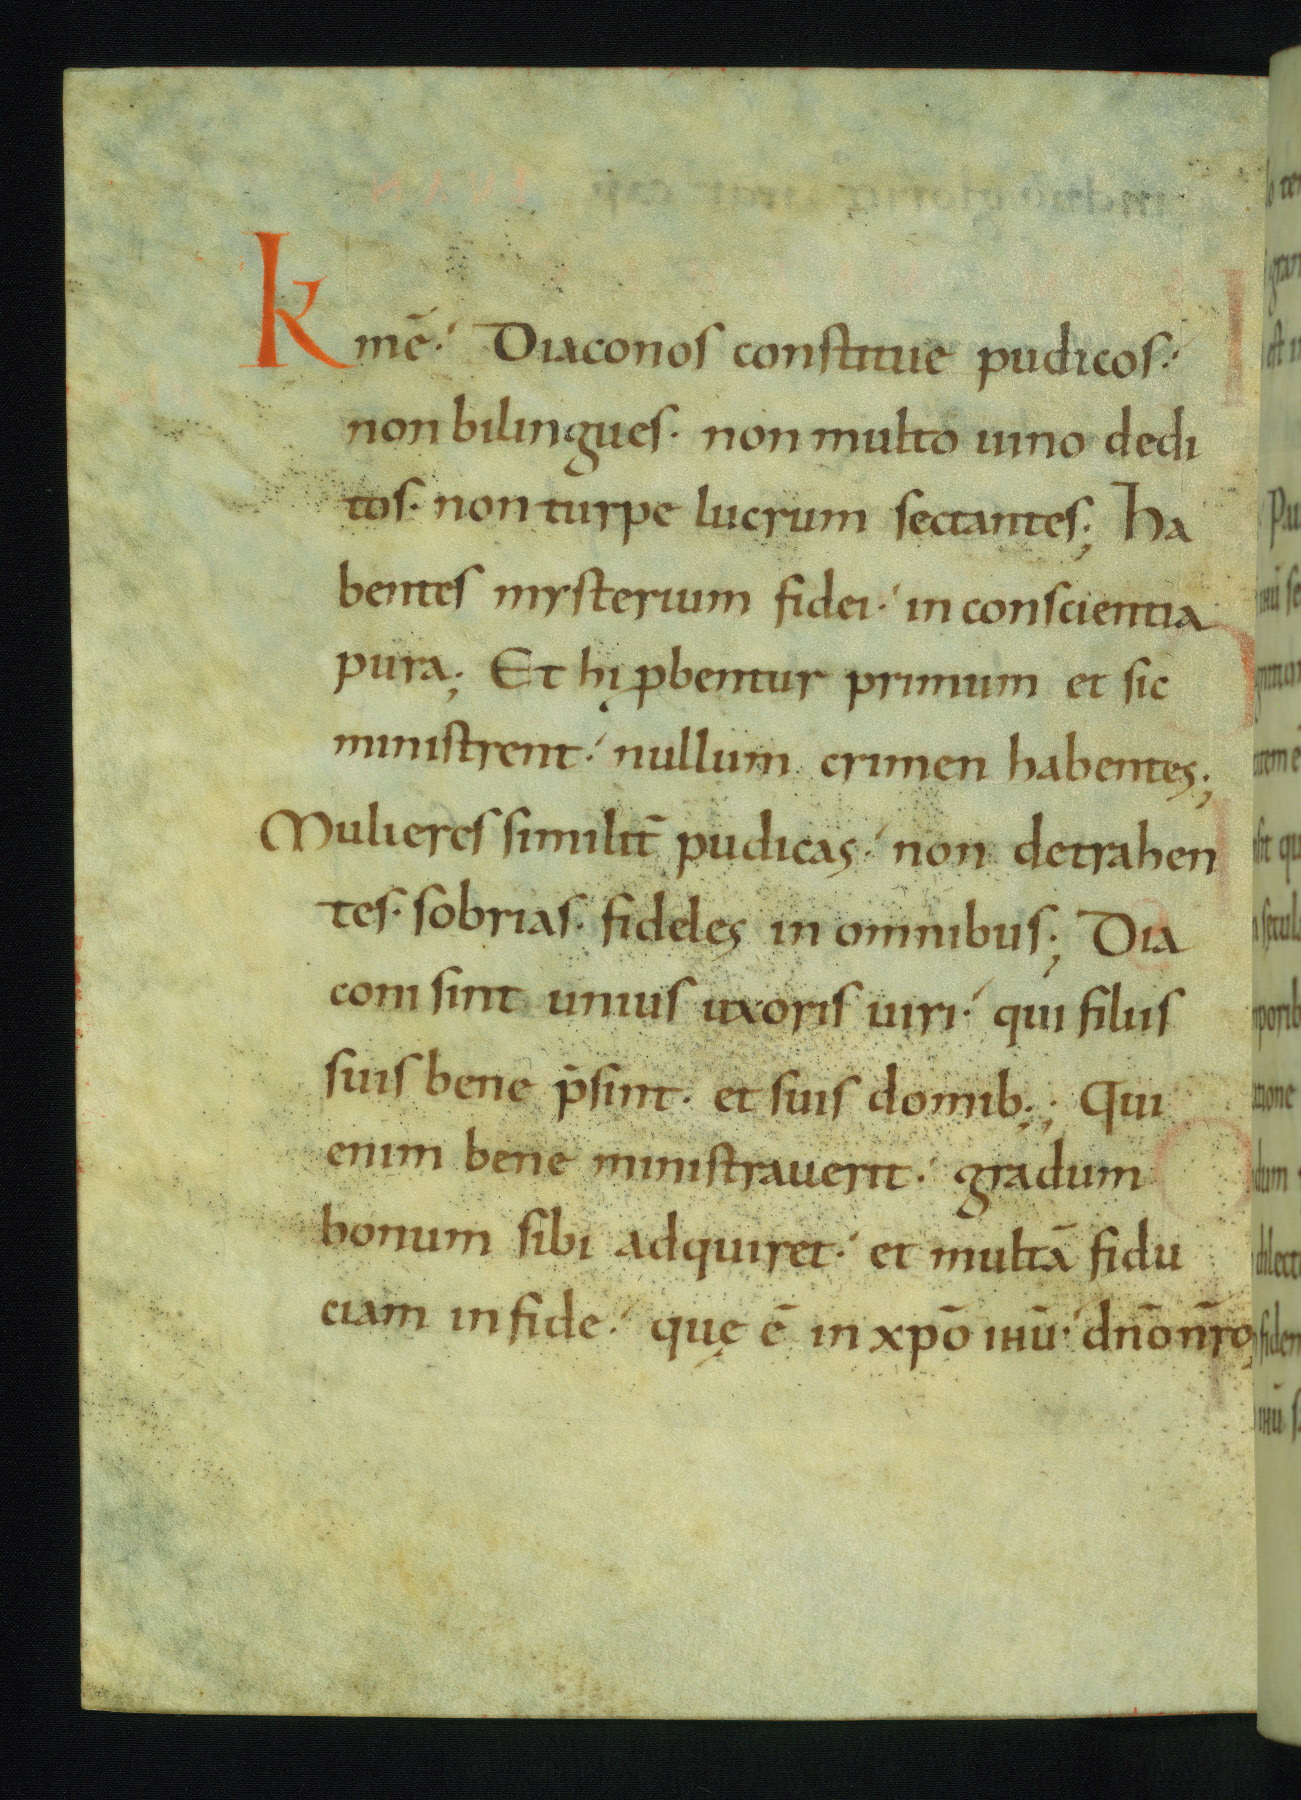 K mē. Diaconos constitue pudicos.
non bilingues. non multo uino dedi
tos. non turpe lucrum sectantes; Ha
bentes mysterium fidei. in conscientia
pura; Et hi ꝓbentur primum et sic
ministrent. nullum crimen habentes;
Mulieres similit̄ pudicas. non detrahen
tes. sobrias. fideles in omnibus; Dia
coni sint unius uxoris uiri. qui filiis
suis bene p̄sint. et suis domib;; Qui
enim bene ministrauerit. gradum
bonum sibi adquiret. et multā fidu
ciam in fide. quę ē in xpō ihū. dnō nr̄o;